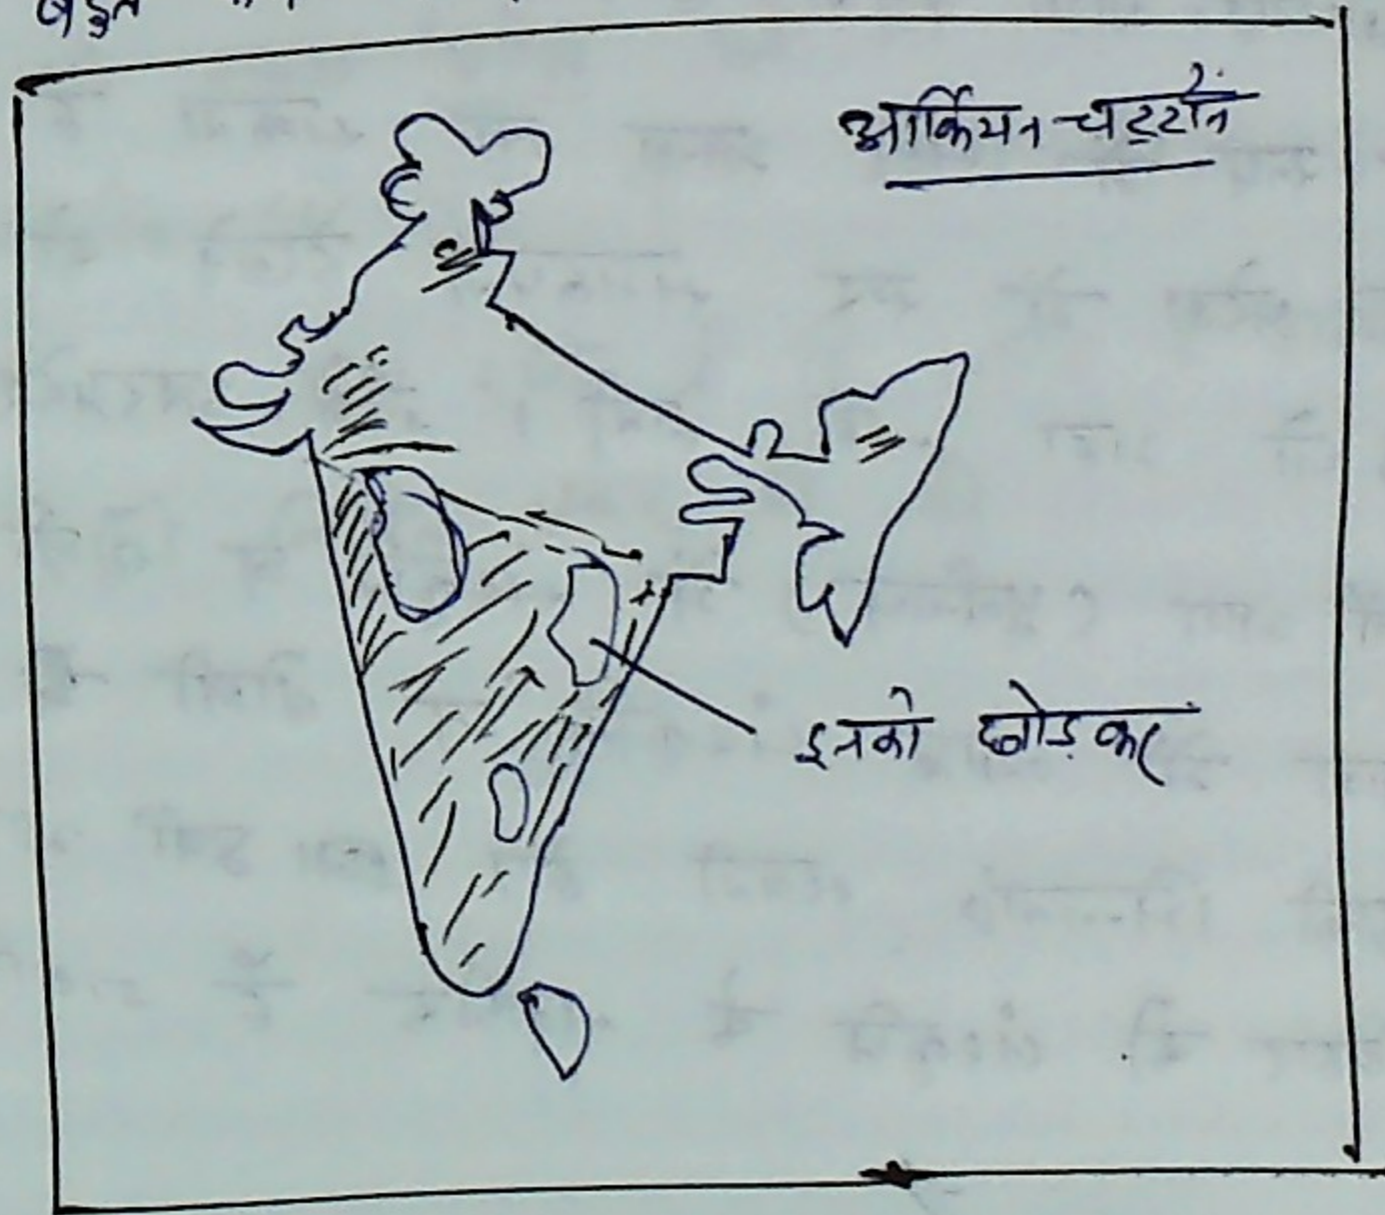 बहुत
आर्कियन चट्टानें
इनको छोड़कर